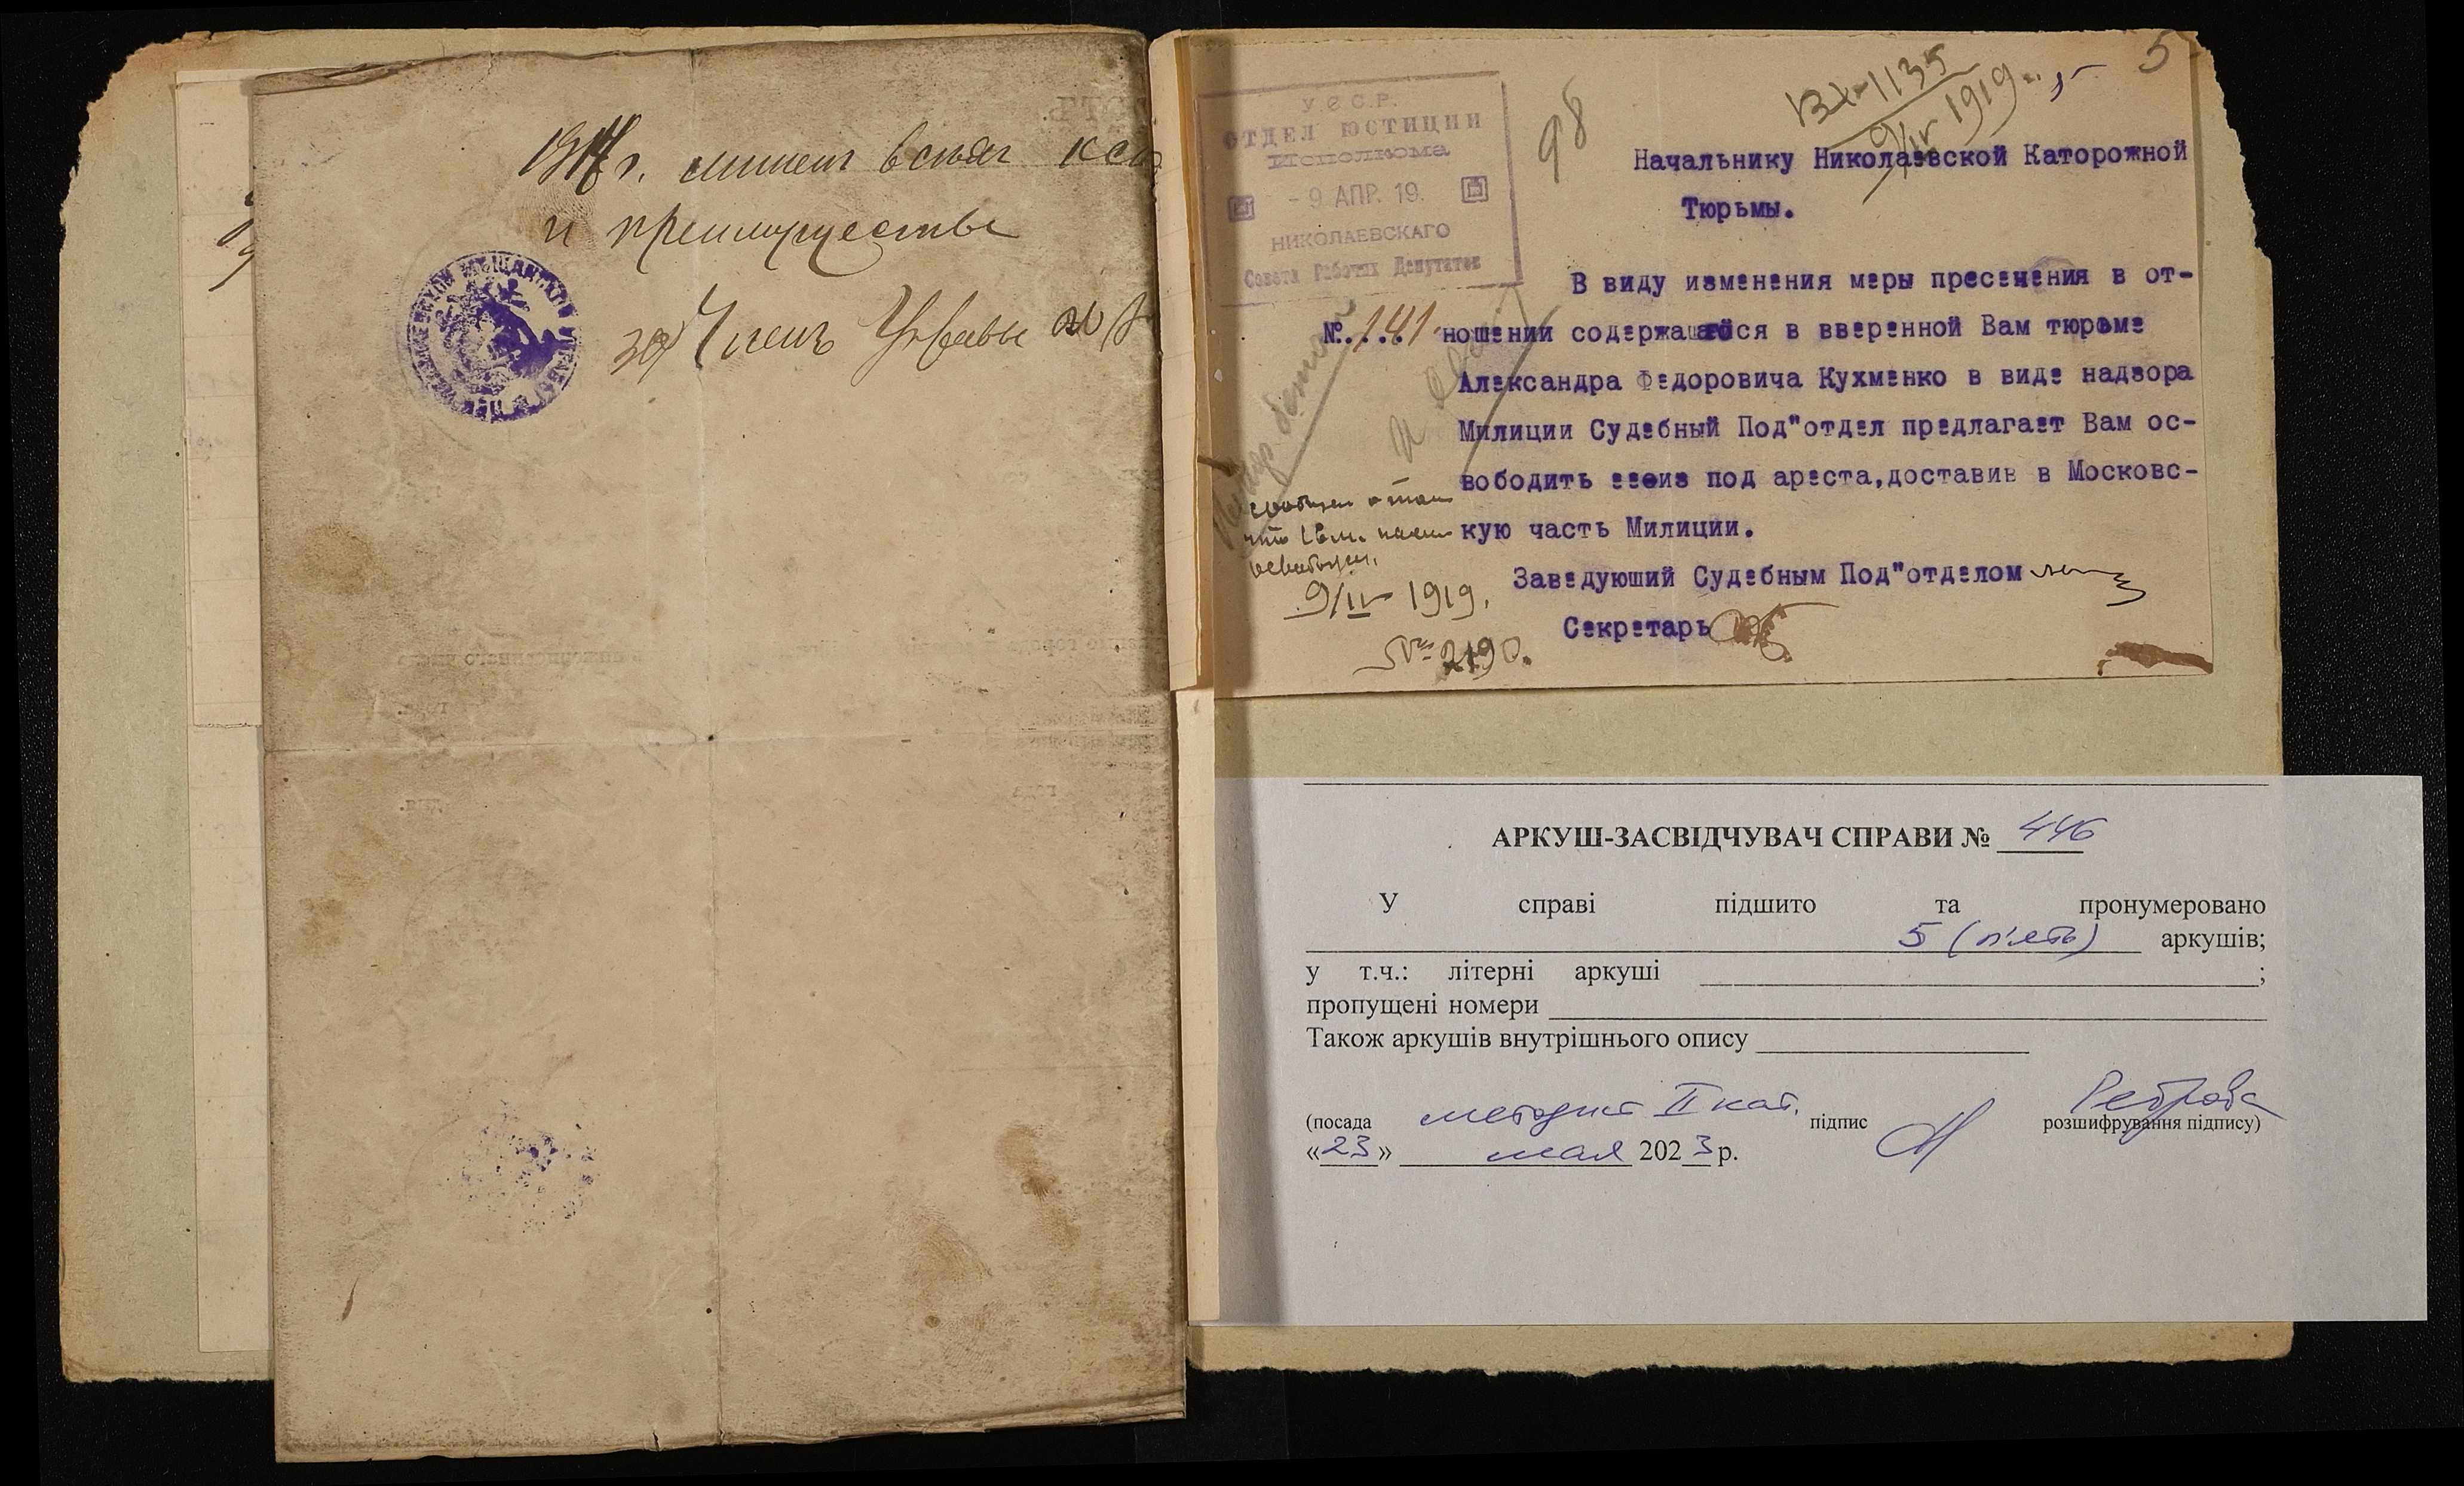 и преимуществ
Член Управы
У.С.С.Р.
ОТДЕЛ ЮСТИЦИИ
Исполкома
- 9 АПР. 19.
НИКОЛАЕВСКАГО
Совета Рабочих Депутатов
№....141
98
ВХ-1135
9/IV 1919 г.
5
Начальнику Николаевской Каторожной
Тюрьмы.
В виду изменения меры пресечения в от-
ношении содержащагося в вверенной Вам тюрьме
Александра Федоровича Кухменко в виде надзора
Милиции Судебный Под"отдел предлагает Вам ос-
вободить из под ареста,доставив в Московс-
кую часть Милиции.
Заведуюший Судебным Под"отделом
Секретарь
9/IV 1919.
№ 2190.
АРКУШ-ЗАСВІДЧУВАЧ СПРАВИ № 446
У справі підшито та пронумеровано
5 (п'ять) аркушів;
у т.ч.: літерні аркуші ;
пропущені номери
Також аркушів внутрішнього опису
(посада методист II кат. підпис розшифрування підпису)
Реброва
«23» мая 2023 р.